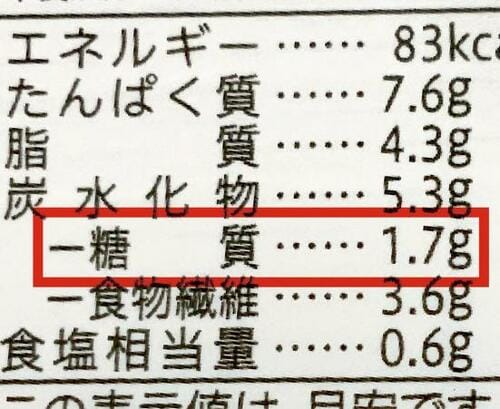 エネルギー……83kca
たんぱく質……7.6g
脂質……4.3g
炭水化物……5.3g
－糖質……1.7g
－食物繊維……3.6g
食塩相当量……0.6g
この表示値は、目安です